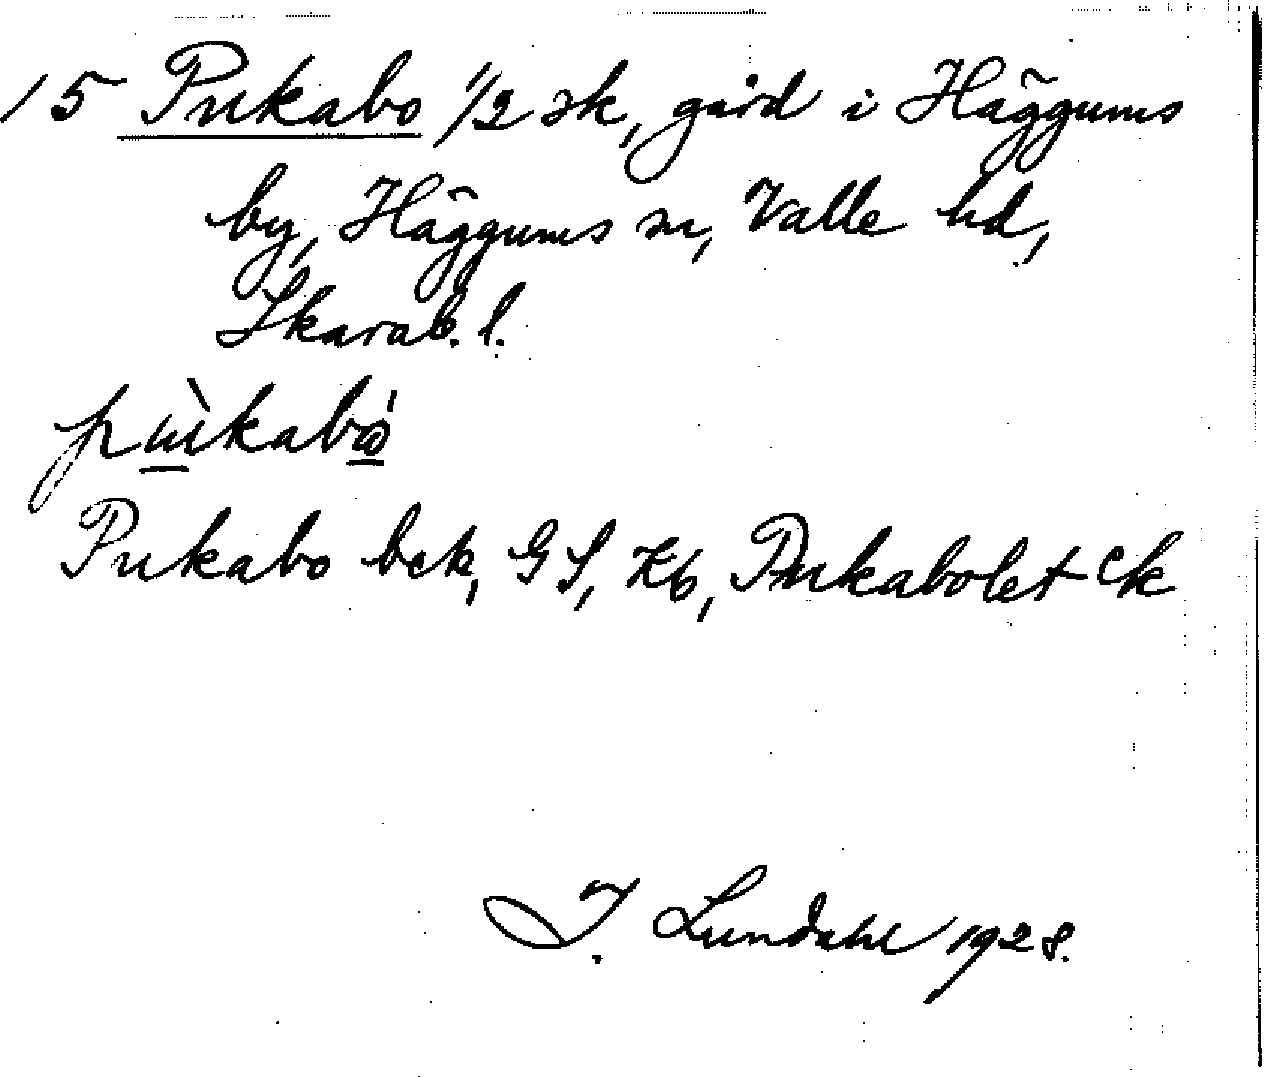 15 Pukabo 1/2 sk, gård i Häggums
by, Häggums sn, Valle hd,
Skarab. l.
pùkabó
Pukabo bek, GS, Kb, Pukabolet Ek
I. Lundahl 1928.